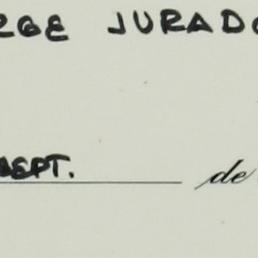 RGE JURADO
SEPT. de